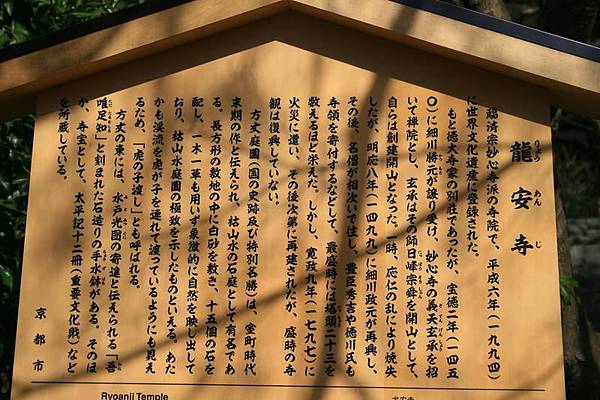 龍安寺
りょう あん じ
臨済宗妙心寺派の寺院で、平成六年(一九九四)
に世界文化遺産に登録された。
もと徳大寺家の別荘であったが、宝徳二年(一四五
〇)に細川勝元が譲り受け、妙心寺の義天玄承を招
いて禅院とし、玄承はその師日峰宗舜を開山として、
自らは創建開山となった。一時、応仁の乱により焼失
したが、明応八年(一四九九)に細川政元が再興し、
その後、名僧が相次いで住し、豊臣秀吉や徳川氏も
寺領を寄付するなどして、最盛時には塔頭二十三を
数えるほど栄えた。しかし、寛政九年(一七九七)に
火災に遭い、その後次第に再建されたが、盛時の寺
観は復興していない。
方丈庭園(国の史跡及び特別名勝)は、室町時代
末期の作と伝えられ、枯山水の石庭として有名であ
る。長方形の敷地の中に白砂を敷き、十五個の石を
配し、一木一草も用いず象徴的に自然を映し出して
おり、枯山水庭園の極致を示したものといえる。あた
かも渓流を虎が子を連れて渡っているようにも見え
るため、「虎の子渡し」とも呼ばれる。
方丈の東には、水戸光圀の寄進と伝えられる「吾
唯足知」と刻まれた石造りの手水鉢がある。そのほ
か、寺宝として、太平記十二冊(重要文化財)など
を所蔵している。
京都市
Ryoanji Temple